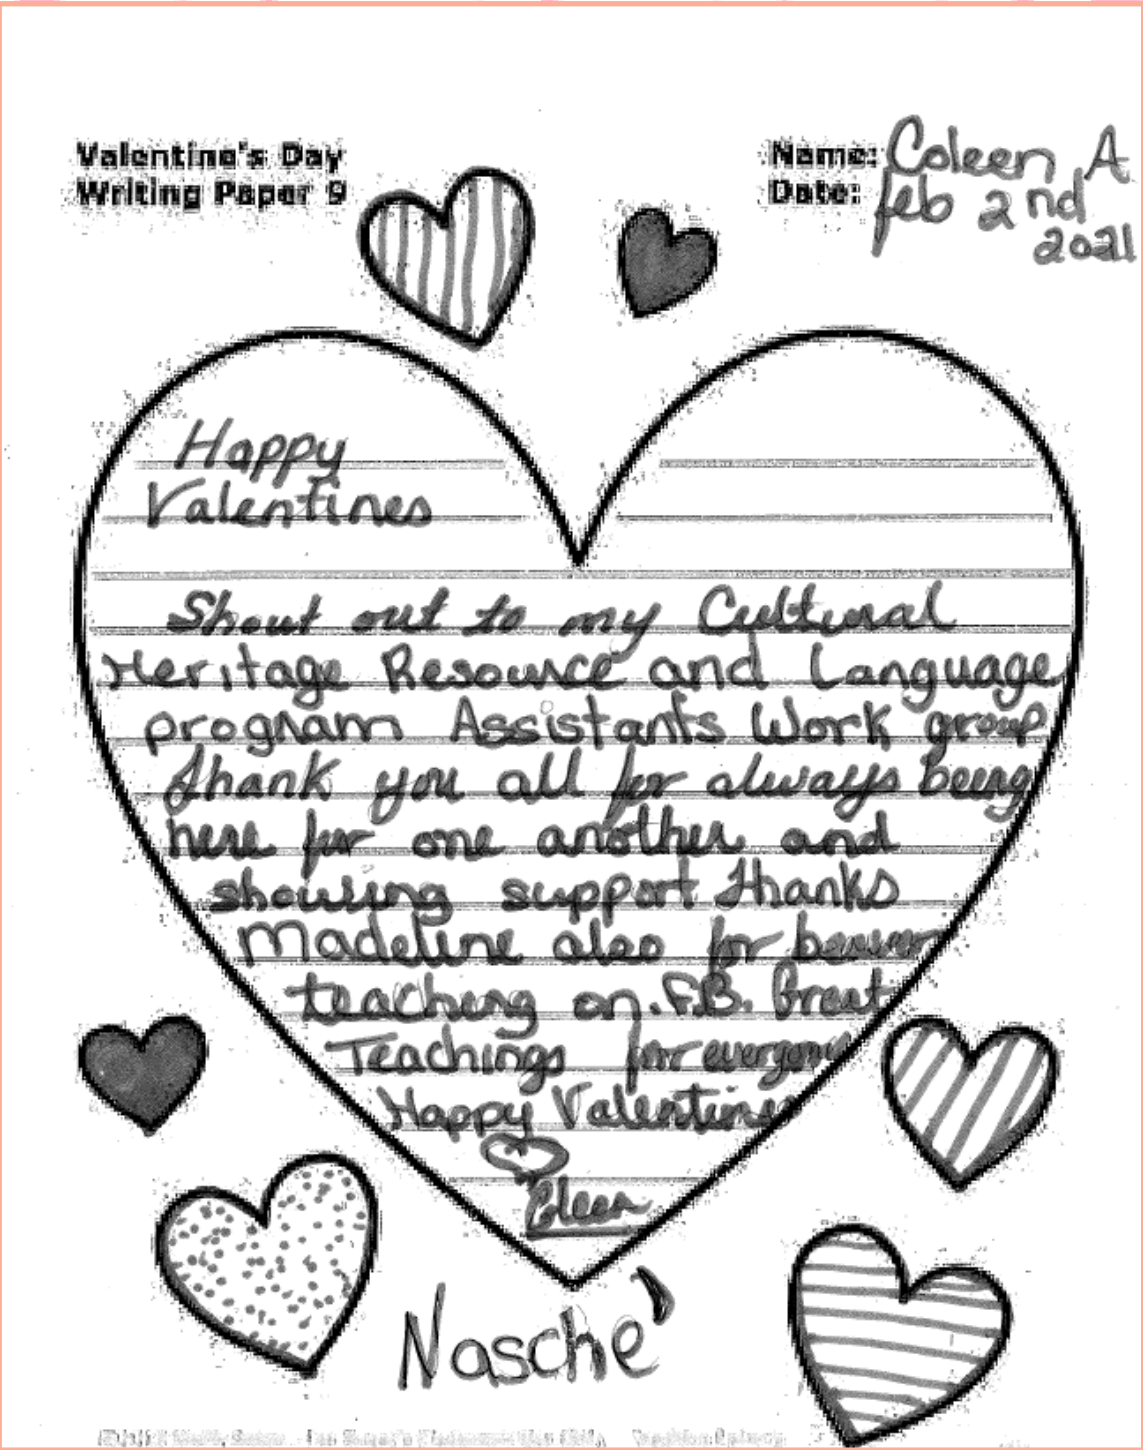 Valentine's Day
Writing Paper 9
Name: Coleen A
Date: feb 2nd
2021
Happy
Valentines
Shout out to my Cultural
Heritage Resource and Language
program Assistants Work group
thank you all for always being
here for one another and
showing support thanks
Madeline also for
teaching on F.B. Great
Teachings for everyone
Happy Valentines
Coleen
Nasche'